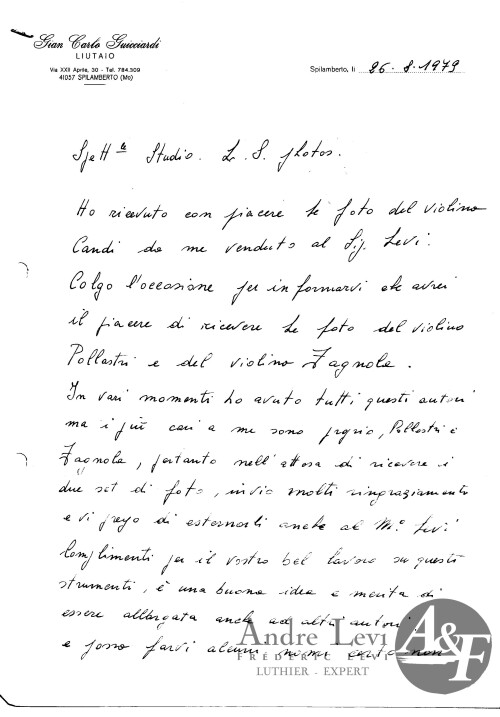 Gian Carlo Guicciardi
LIUTAIO
Via XXII Aprile, 30 - Tel. 784.309
41057 SPILAMBERTO (Mo)
Spilamberto, li 26.8.1979
Spett.le Studio. L. S. photos.
Ho ricevuto con piacere le foto del violino
Candi da me venduto al Sig. Levi.
Colgo l'occasione per informarvi che avrei
il piacere di ricevere le foto del violino
Pollastri e del violino Fagnola.
In vari momenti ho avuto tutti questi autori
ma i più cari a me sono proprio, Pollastri e
Fagnola, pertanto nell'attesa di ricevere i
due set di foto, invio molti ringraziamenti
e vi prego di esternarli anche al M° Levi
Complimenti per il vostro bel lavoro su questi
strumenti, è una buona idea e merita di
essere allargata anche ad altri autori
e posso farvi alcuni nomi certo non
Andre Levi
FRÉDÉRIC LEVI
LUTHIER - EXPERT
A&F